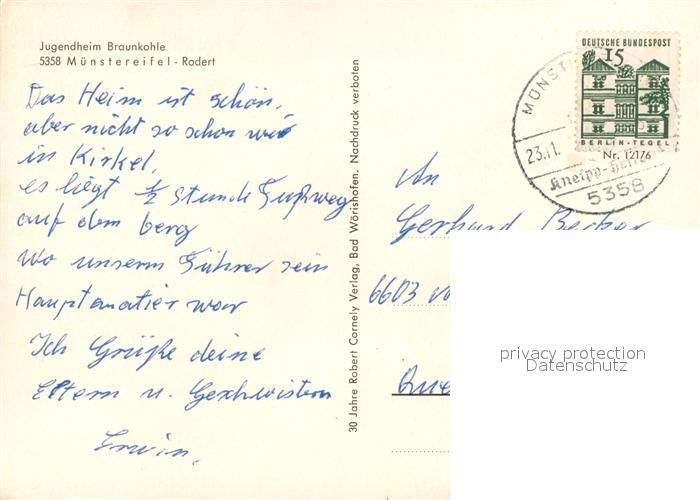 Jugendheim Braunkohle
5358 Münstereifel - Rodert
Das Heim ist schön,
aber nicht so schon wie
in Kirkel,
es liegt ½ stunde Fußweg
auf dem berg
wo unserm Führer sein
Hauptmatier war
Ich Grüße deine
Eltern u. Geschwistern
Erwin,
30 Jahre Robert Cornely Verlag, Bad Wörishofen. Nachdruck verboten
DEUTSCHE BUNDESPOST
15
BERLIN-TEGEL
MÜNST
23.11.
Kneipp-Heil
5358
Nr. 12176
An
Gerhard Becker
6603
privacy protection
Datenschutz